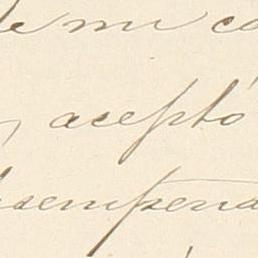 de mi ca
aceptó
desempeña